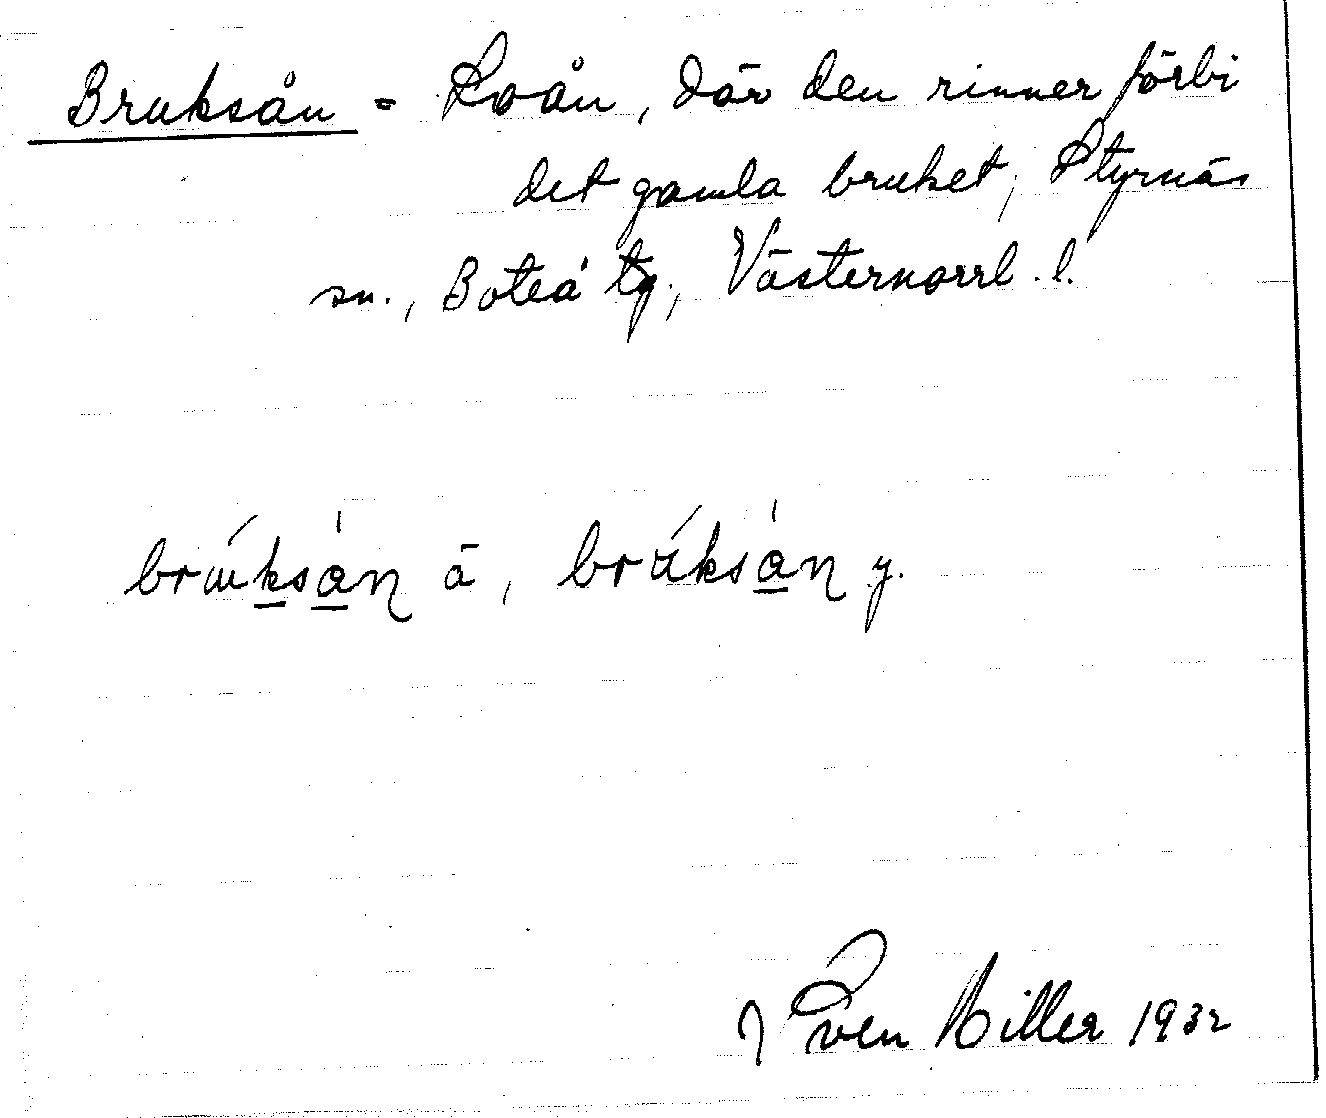 Bruksån = Loån, där den rinner förbi
det gamla bruket, Styrnäs
sn., Boteå tg., Västernorrl. l.
brúksán ä, brúksán y.
Sven Hiller 1932